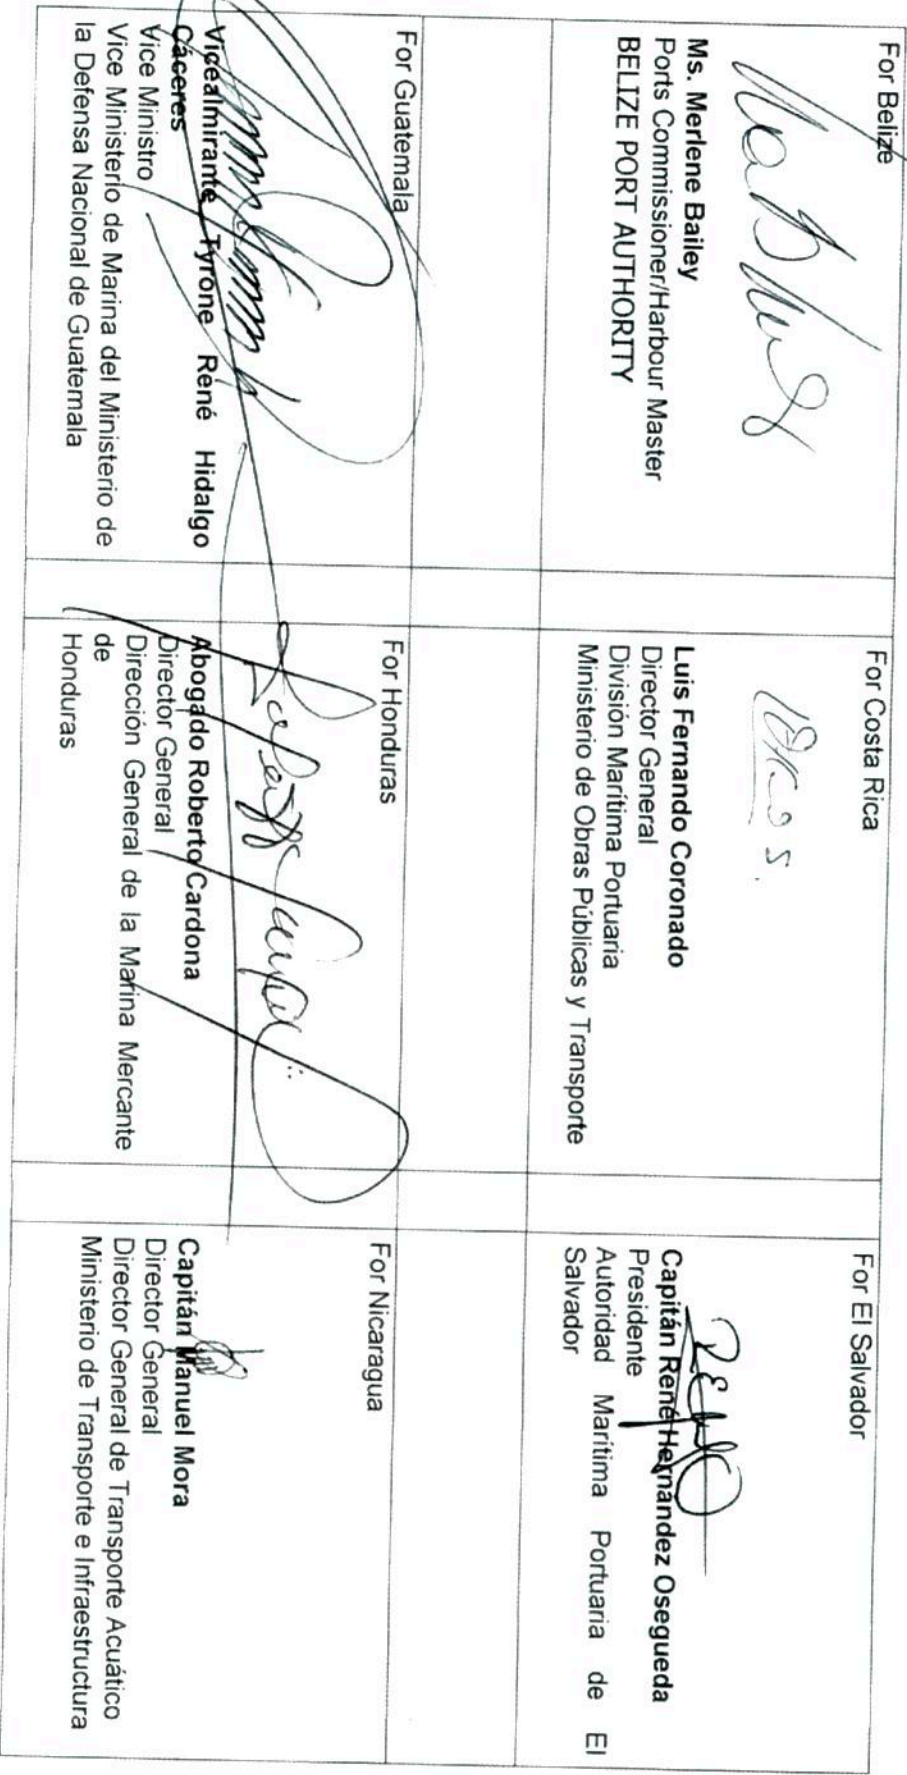 For Belize
Ms. Merlene Bailey
Ports Commissioner/Harbour Master
BELIZE PORT AUTHORITY
For Costa Rica
Luis Fernando Coronado
Director General
División Marítima Portuaria
Ministerio de Obras Públicas y Transporte
For El Salvador
Capitán René Hernández Osegueda
Presidente
Autoridad Marítima Portuaria de El
Salvador
For Guatemala
Vicealmirante Tyrone René Hidalgo
Cáceres
Vice Ministro
Vice Ministerio de Marina del Ministerio de
la Defensa Nacional de Guatemala
For Honduras
Abogado Roberto Cardona
Director General
Dirección General de la Marina Mercante
de
Honduras
For Nicaragua
Capitán Manuel Mora
Director General
Director General de Transporte Acuático
Ministerio de Transporte e Infraestructura